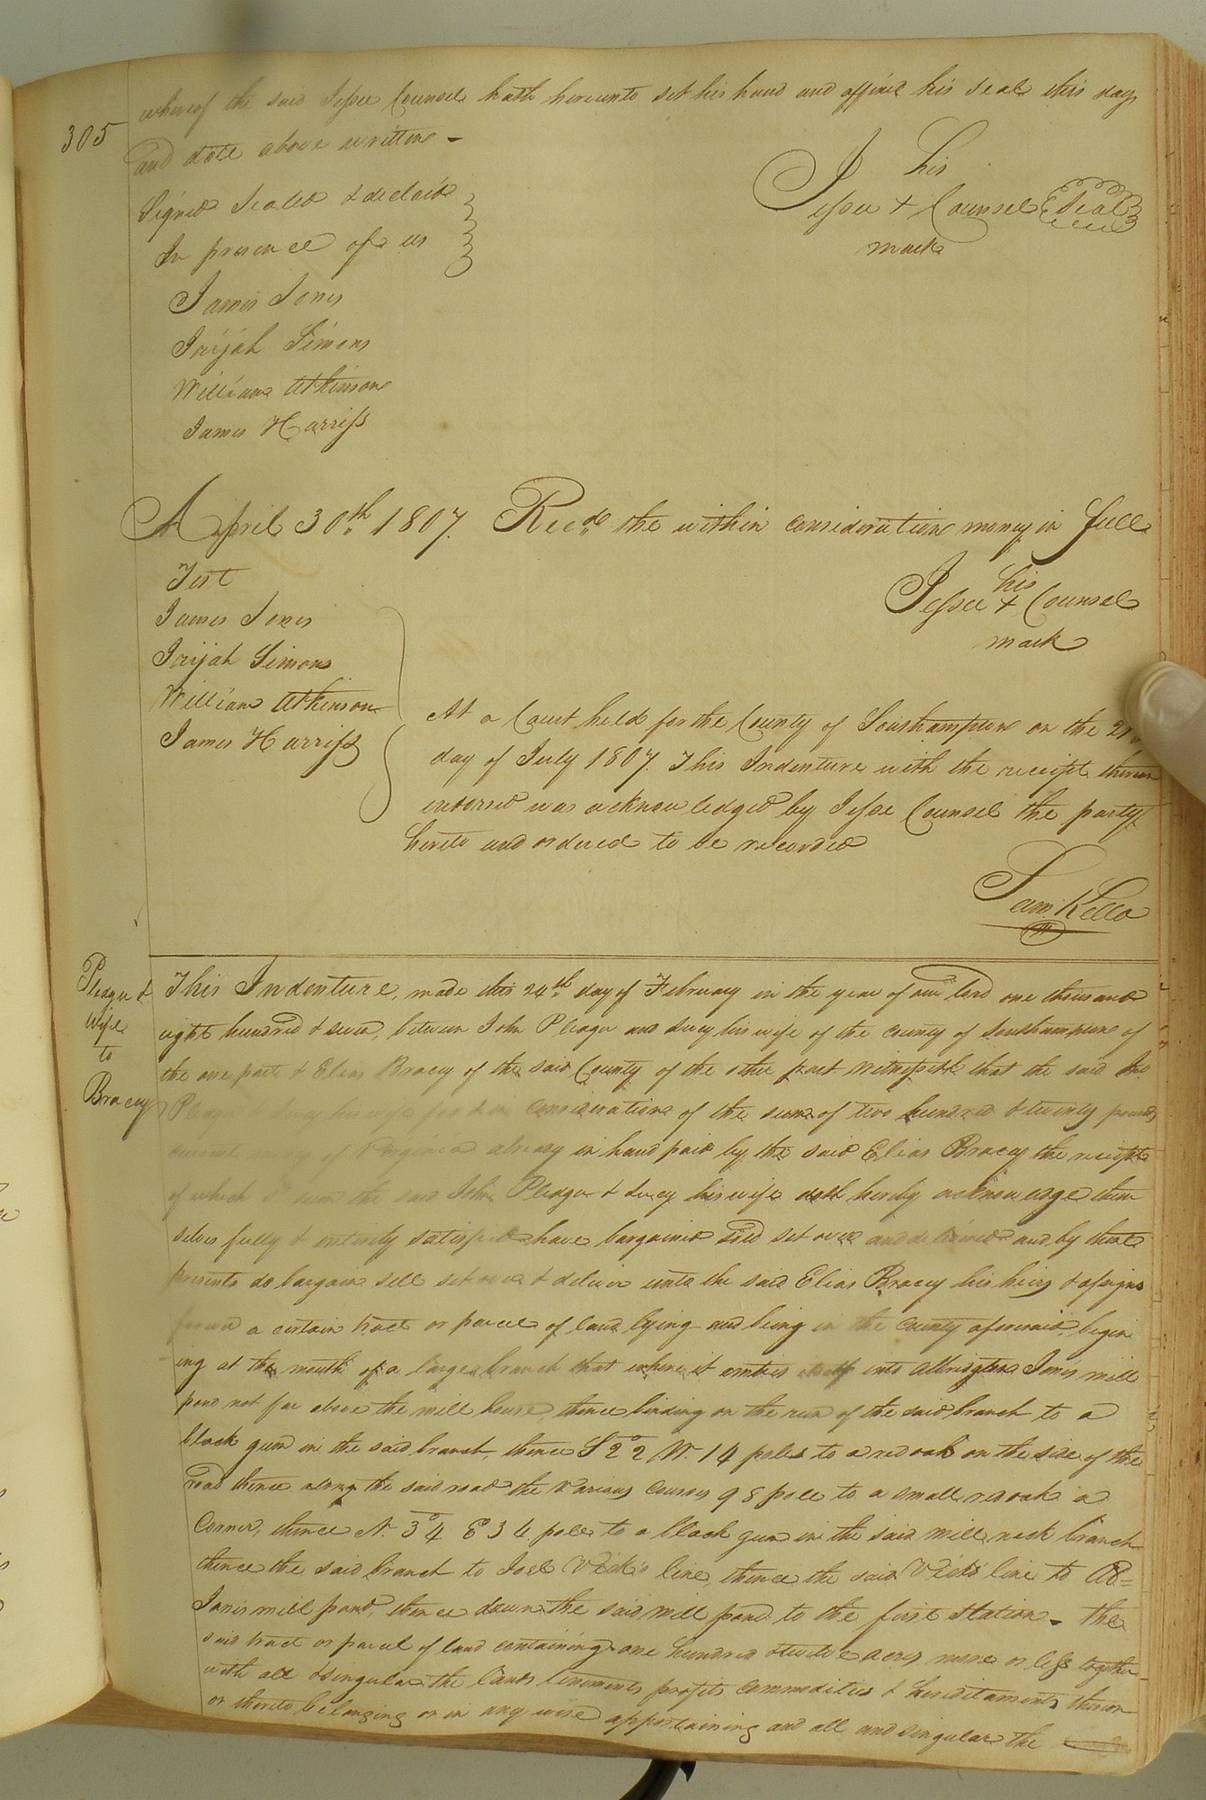 305
whereof the said Jesse Counsel hath hereunto set his hand and affix'd his seal this day
and date above written -
Signed Sealed & declaid
In presence of us
his
Jesse + Counsel Seal
mark
James Jones
Jorijah Simons
William Atkinson
James Harriss
April 30th 1807. Recd. the within consideration money in full
Test
his
Jesse + Counsel
mark
James Jones
Jorijah Simons
William Atkinson
James Harriss
At a Court held for the County of Southampton on the
day of July 1807. This Indenture with the receipt thereon
indorsed was acknowledged by Jesse Counsel the party
hereto and ordered to be recorded
Sam Kello
Pledger &
Wife
to
Bracey
This Indenture, made this 24th. day of February in the year of our lord one thousand
eight hundred & seven, between John Pledger and Lucy his wife of the county of Southampton of
the one part & Elias Bracey of the said County of the other part Witnesseth that the said Jno
Pledger Lucy his wife for & in consideration of the sum of two hundred & twenty pounds
current money of Virginia already in hand paid by the said Elias Bracey the receipt
of which sum the said John Pledger & Lucy his wife doth hereby acknowledge them
selves fully & entirely satisfied have bargained sold set over and delivered and by these
presents do bargain sell set over & deliver unto the said Elias Bracey his heirs & assigns
forever a certain tract or parcel of land lying and being in the county aforesaid, begin
ing at the mouth of a large branch that where it emties itself into Albrighton Jones mill
pond not far above the mill house, thence binding on the run of the said branch to a
black gum in the said branch, thence S 22° W. 14 poles to a red oak on the side of the
road thence along the said road the various courses 98 pole to a small red oak a
Corner, thence N. 34° E 36 poles to a black gum in the said mill neck branch
thence the said branch to Joel Vick's line, thence the said Vicks line to
Jones mill pond, thence down the said mill pond to the first station - the
said tract or parcel of land containing one hundred & twelve acres more or less together
with all & singular the lands tenements profits commodities & hereditaments thereon
or thereto belonging or in any wise appertaining and all and singular the